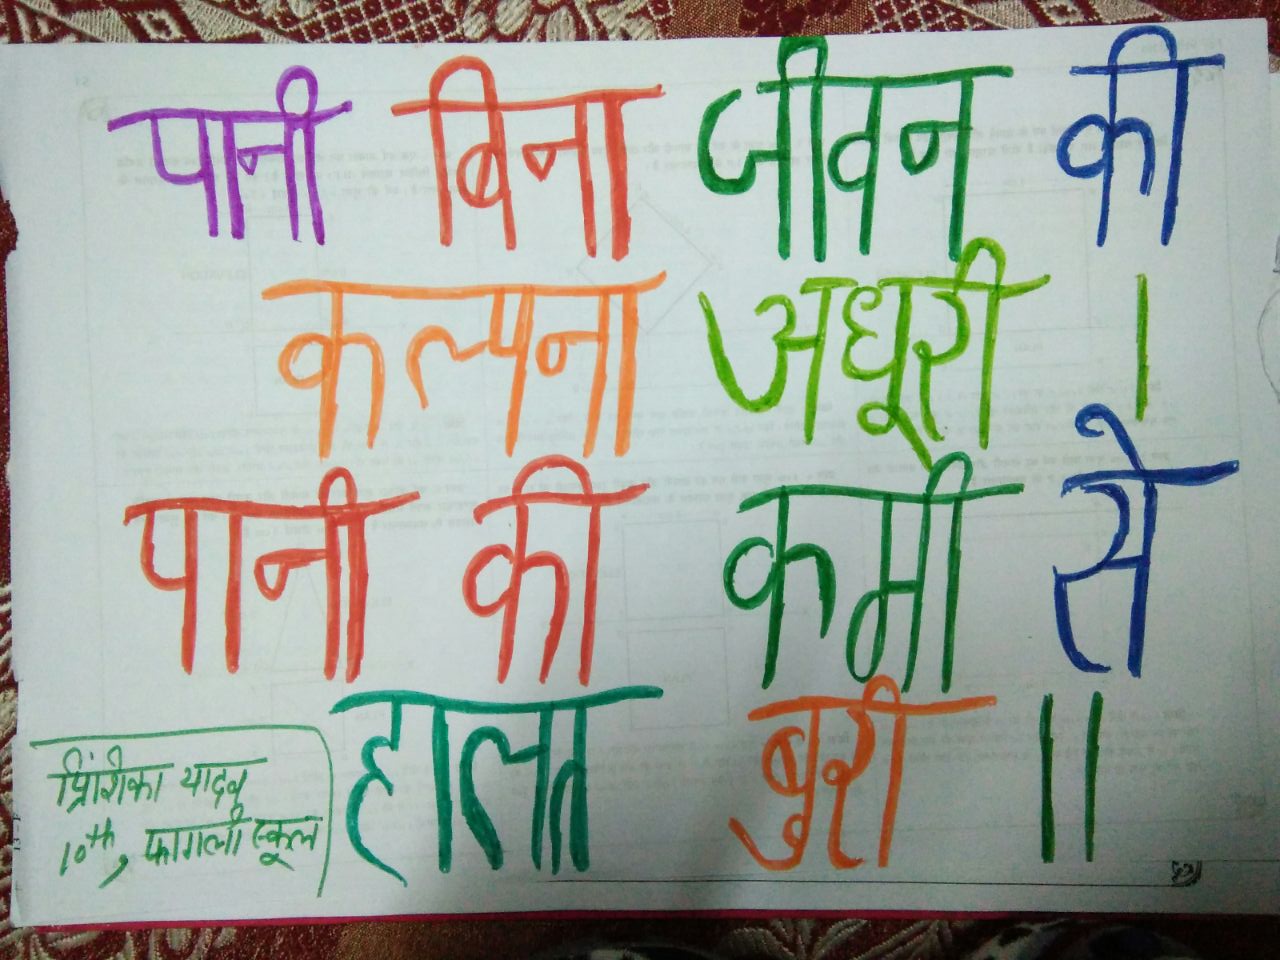 पानी बिना जीवन की
कल्पना अधूरी ।
पानी की कमी से
हालत बुरी ॥
प्रिंशिका यादव
10th, फागली स्कूल